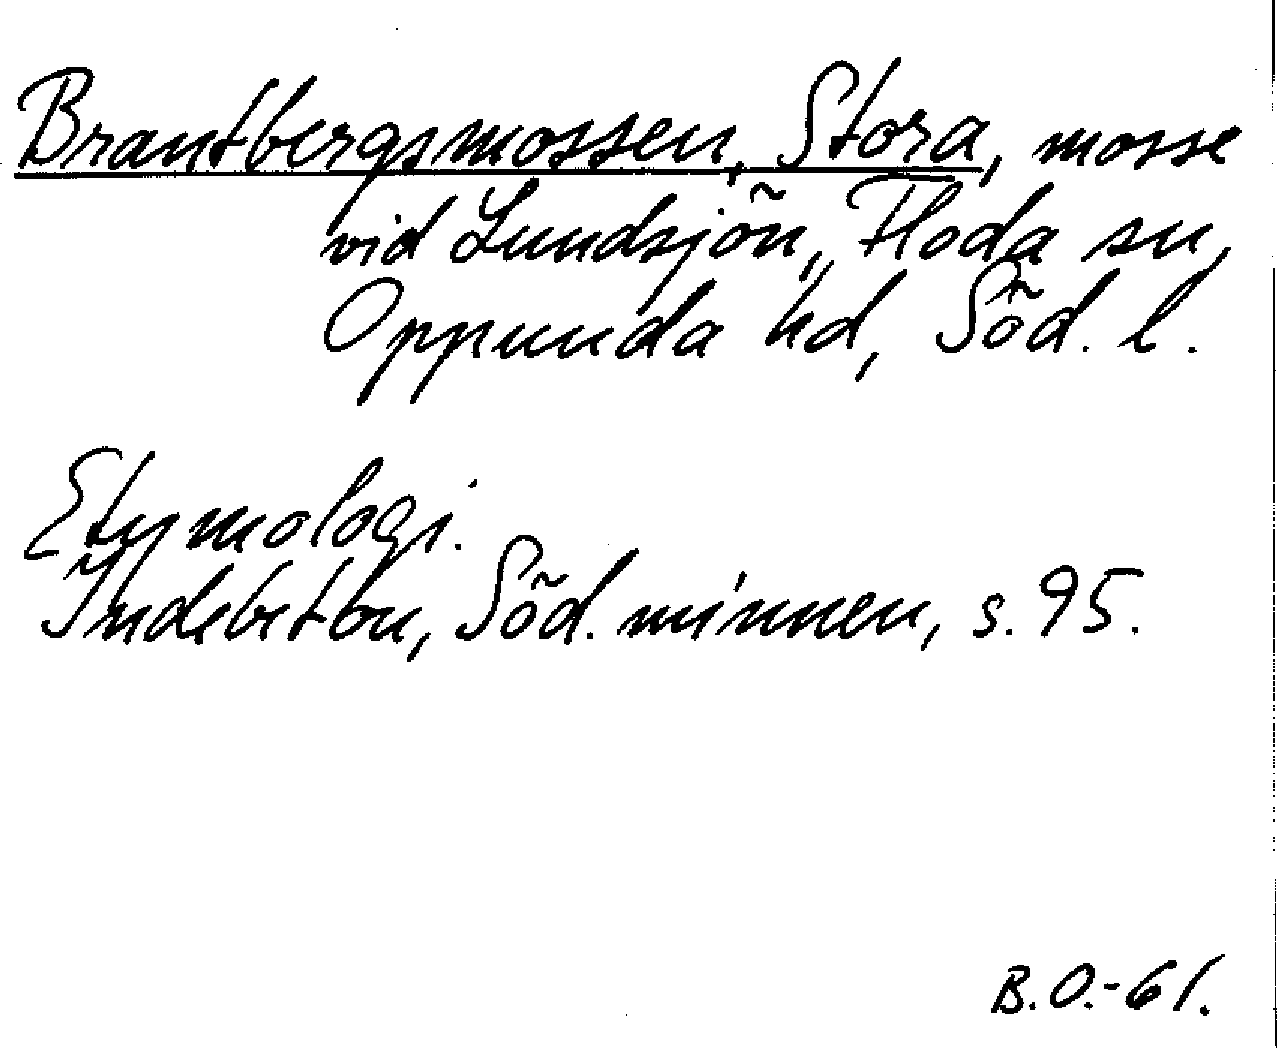 Brantbergsmossen, Stora, mosse
vid Lundsjön, Floda sn,
Oppunda hd, Söd. l.
Etymologi.
Indebetou, Söd. minnen, s. 95.
B.O.-61.